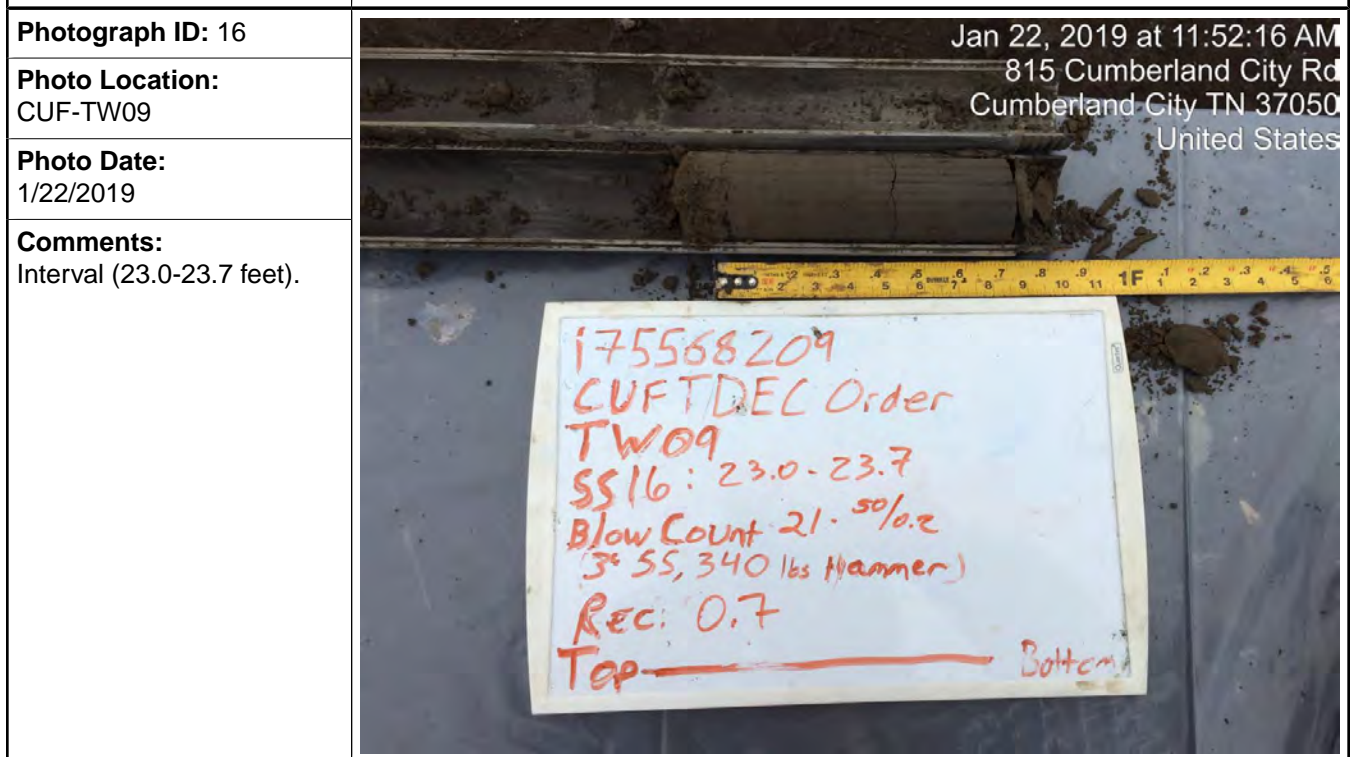 Photograph ID: 16
Photo Location:
CUF-TW09
Photo Date:
1/22/2019
Comments:
Interval (23.0-23.7 feet).
Jan 22, 2019 at 11:52:16 AM
815 Cumberland City Rd
Cumberland City TN 37050
United States
.2 .3 .4 .5 .6 .7 .8 .9 1F .1 .2 .3 .4 .5
2 3 4 5 6 7 8 9 10 11 1 2 3 4 5 6
175568209
CUF TDEC Order
TW09
SS16: 23.0-23.7
Blow Count 21-50/0.2
(3" SS, 340 lbs Hammer)
Rec: 0.7
Top Bottom